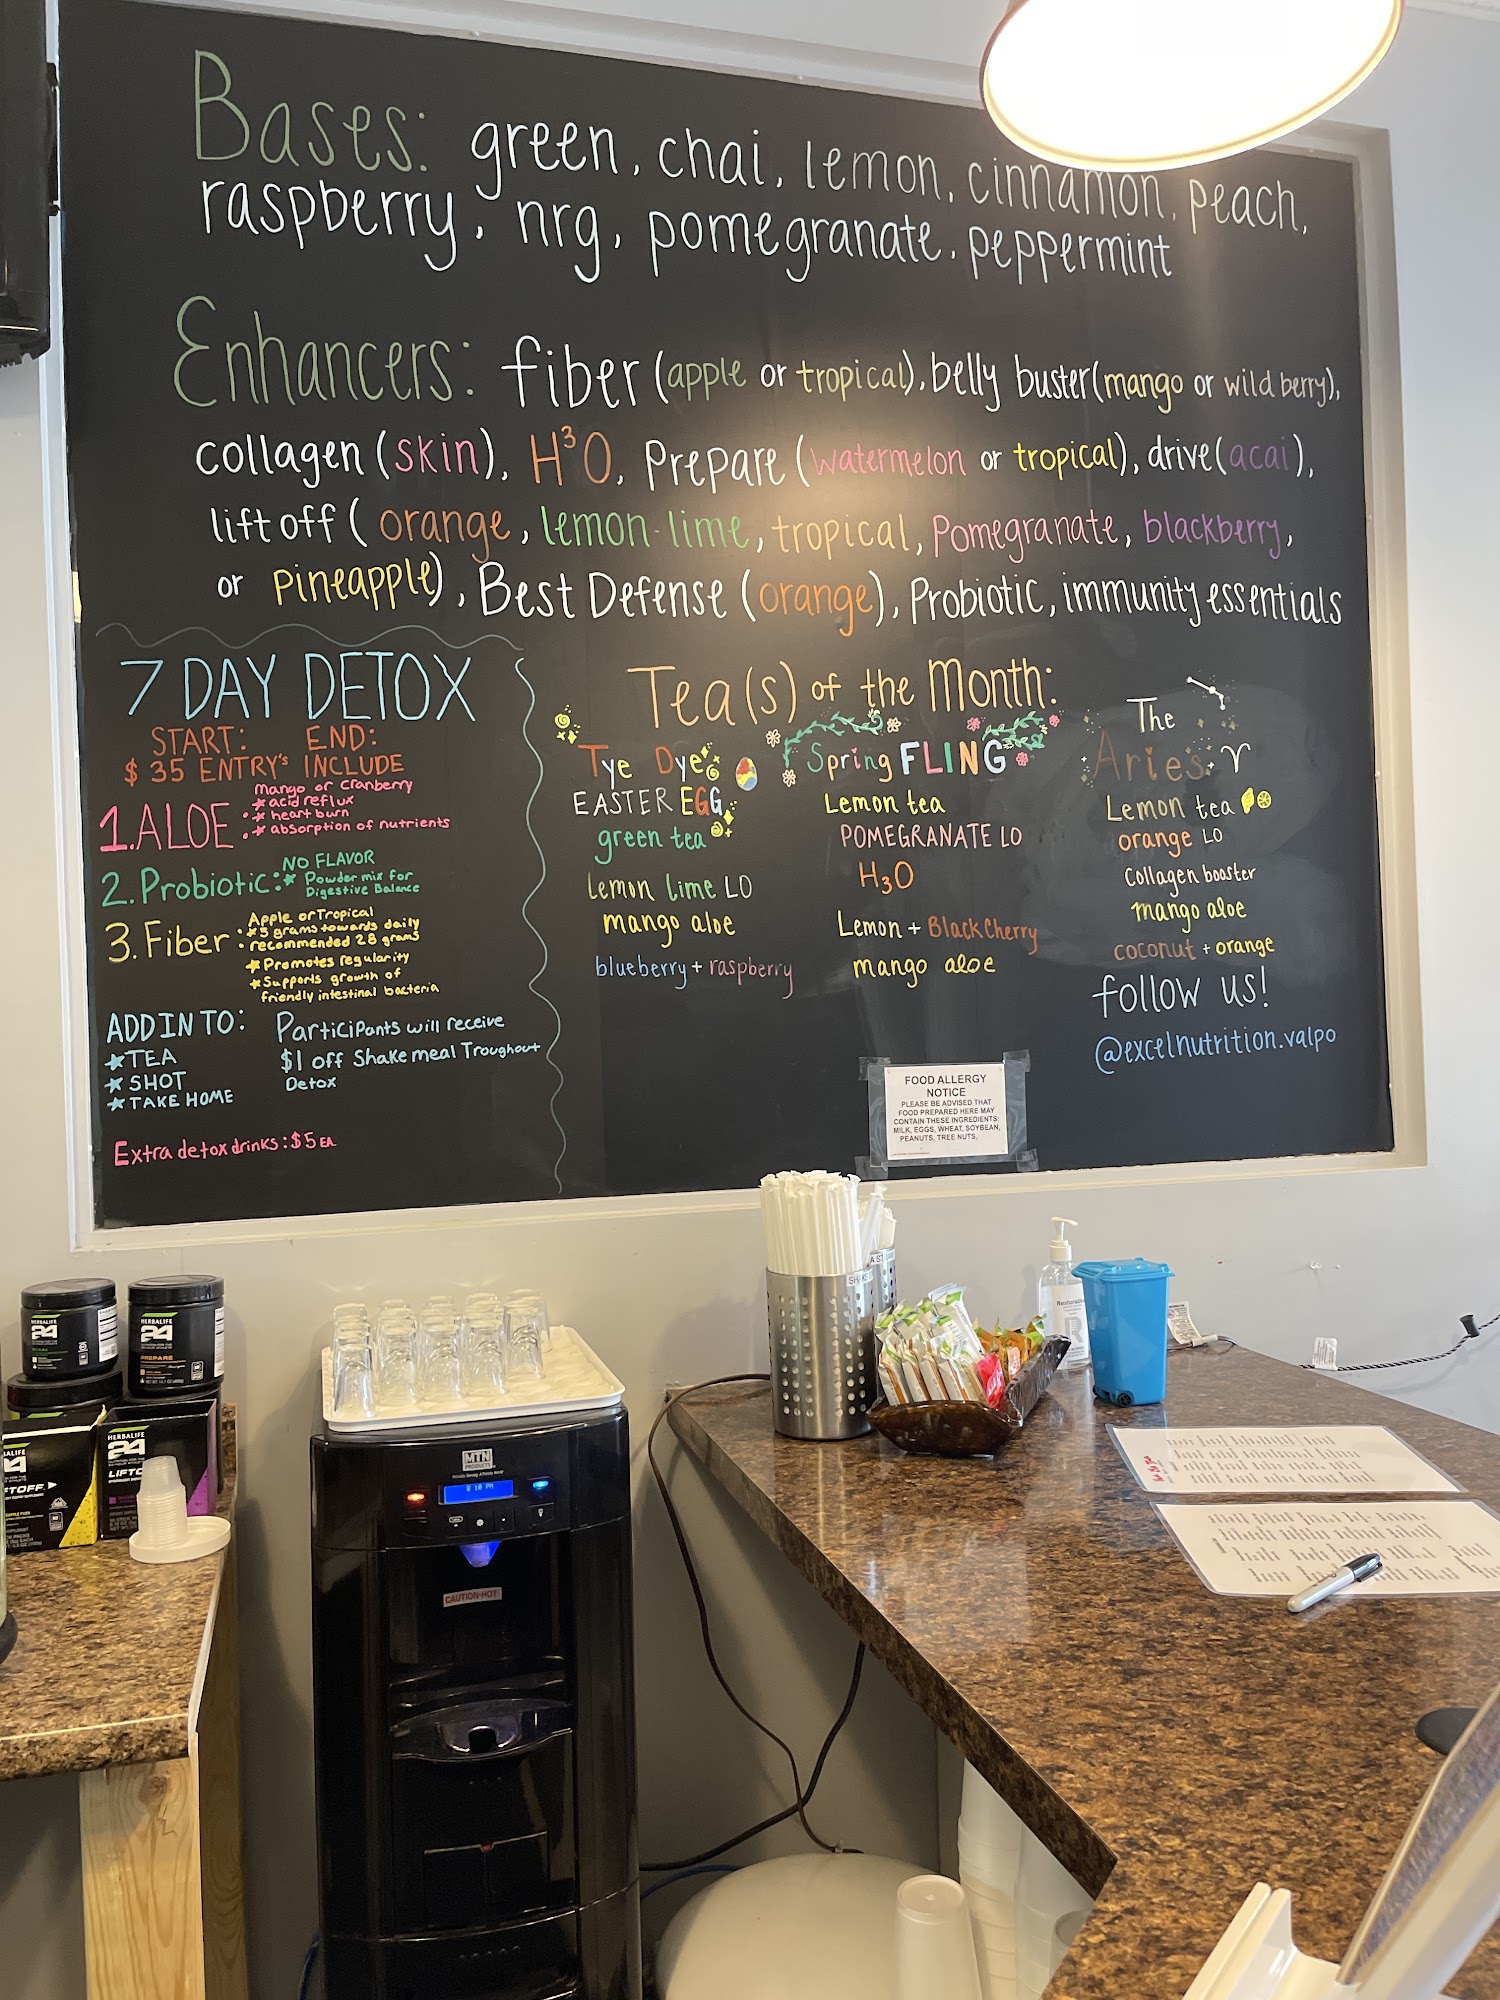 Bases: green, chai, lemon, cinnamon, peach,
raspberry, nrg, pomegranate, peppermint
Enhancers: fiber (apple or tropical), belly buster (mango or wild berry),
collagen (skin), H³O, Prepare (watermelon or tropical), drive (acai),
liftoff ( orange, lemon-lime, tropical, Pomegranate, blackberry,
or pineapple), Best Defense (orange), Probiotic, immunity essentials
7 DAY DETOX
START: END:
$ 35 ENTRY'S INCLUDE
1. ALOE:
Mango or Cranberry
acid reflux
heart burn
absorption of nutrients
2. Probiotic:
NO FLAVOR
Powder mix for
Digestive Balance
3. Fiber:
Apple or Tropical
5 grams towards daily
recommended 28 grams
Promotes regularity
Supports growth of
friendly intestinal bacteria
ADD IN TO:
TEA
SHOT
TAKE HOME
Participants will receive
$1 off Shake meal Troughout
Detox
Extra detox drinks: $5 EA.
Tea(s) of the Month:
Tye Dye
EASTER EGG
green tea
lemon lime LO
mango aloe
blueberry + raspberry
Spring FLING
Lemon tea
POMEGRANATE LO
H3O
Lemon + Black Cherry
mango aloe
The
Aries
Lemon tea
orange LO
Collagen booster
mango aloe
coconut + orange
follow us!
@excelnutrition.valpo
FOOD ALLERGY
NOTICE
PLEASE BE ADVISED THAT
FOOD PREPARED HERE MAY
CONTAIN THESE INGREDIENTS:
MILK, EGGS, WHEAT, SOYBEAN,
PEANUTS, TREE NUTS,
HERBALIFE
24
HERBALIFE
24
PREPARE
HERBALIFE
24
LIFTO
TOFF.
MTN
PRODUCTS
CAUTION-HOT